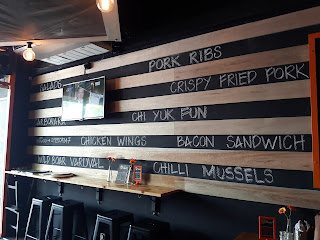 PORK RIBS
SALADS
CRISPY FRIED PORK
CARBONARA
CHI YUK FUN
CHICKEN WINGS
BACON SANDWICH
WILD BOAR
CHILLI MUSSELS